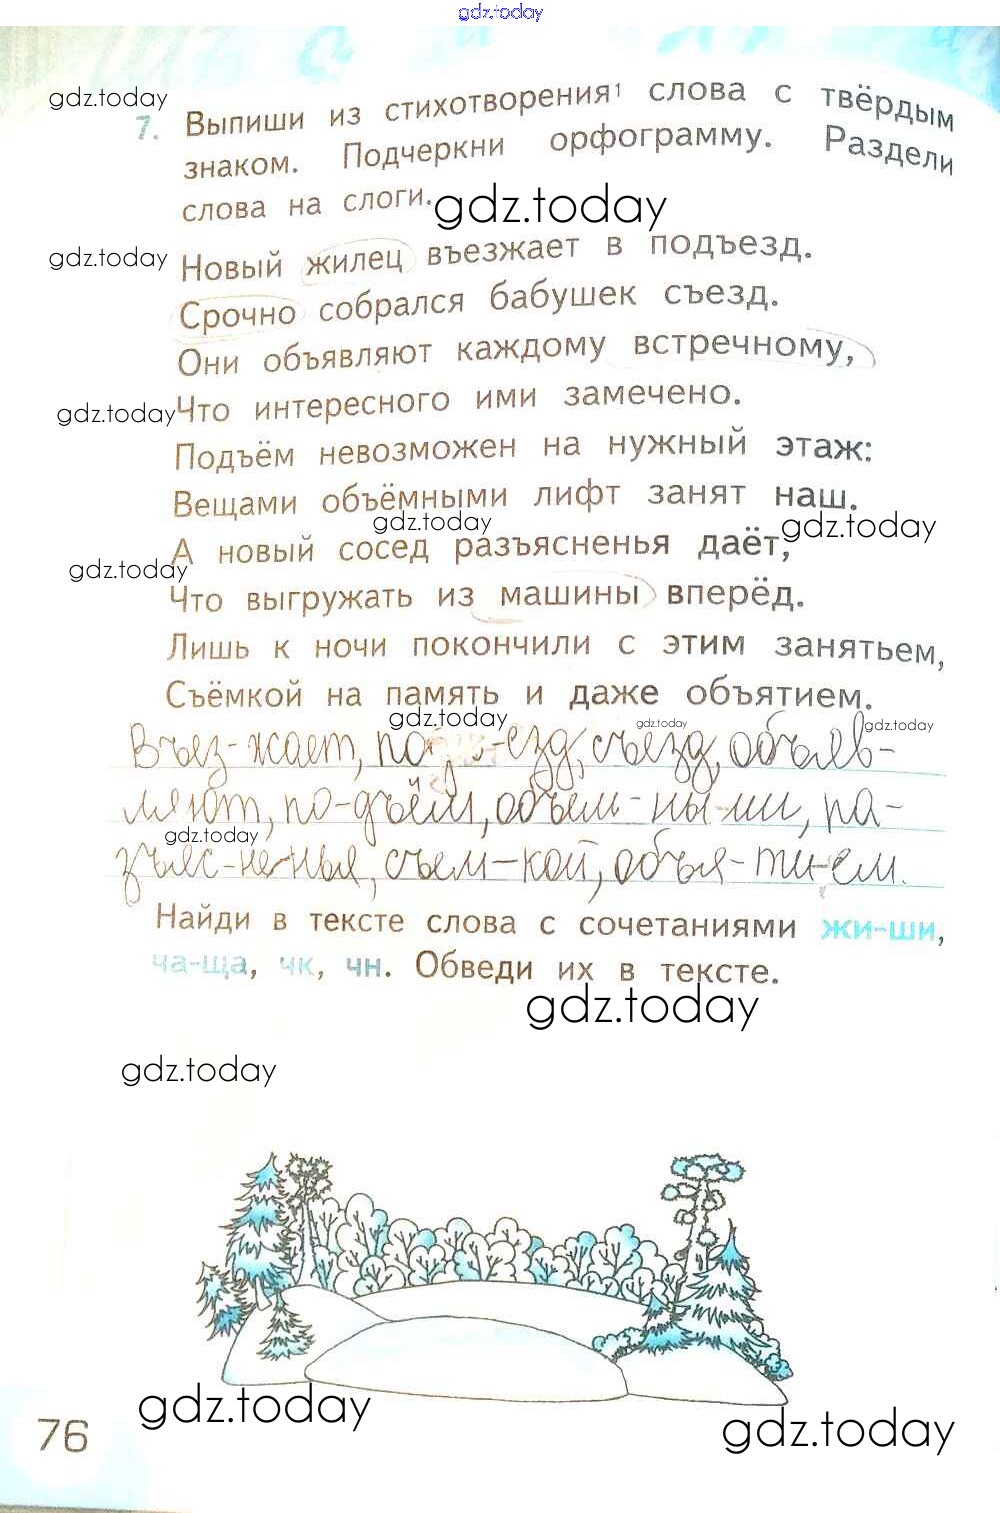 gdz.today
gdz.today
7. Выпиши из стихотворения¹ слова с твёрдым
знаком. Подчеркни орфограмму. Раздели
слова на слоги.
gdz.today
gdz.today
Новый жилец въезжает в подъезд.
Срочно собрался бабушек съезд.
Они объявляют каждому встречному,
gdz.today
Что интересного ими замечено.
Подъём невозможен на нужный этаж:
Вещами объёмными лифт занят наш.
gdz.today
gdz.today
А новый сосед разъясненья даёт,
gdz.today
Что выгружать из машины вперёд.
Лишь к ночи покончили с этим занятьем,
Съёмкой на память и даже объятием.
gdz.today
gdz.today
gdz.today
Въез-жает, по -езд, съезд, объяв-
ляют, по-дъём, объём-ны-ми, ра-
gdz.today
зъяс-не-нья, съем-кой, объя-ти-ем.
Найди в тексте слова с сочетаниями жи-ши,
ча-ща, чк, чн. Обведи их в тексте.
gdz.today
gdz.today
gdz.today
gdz.today
76